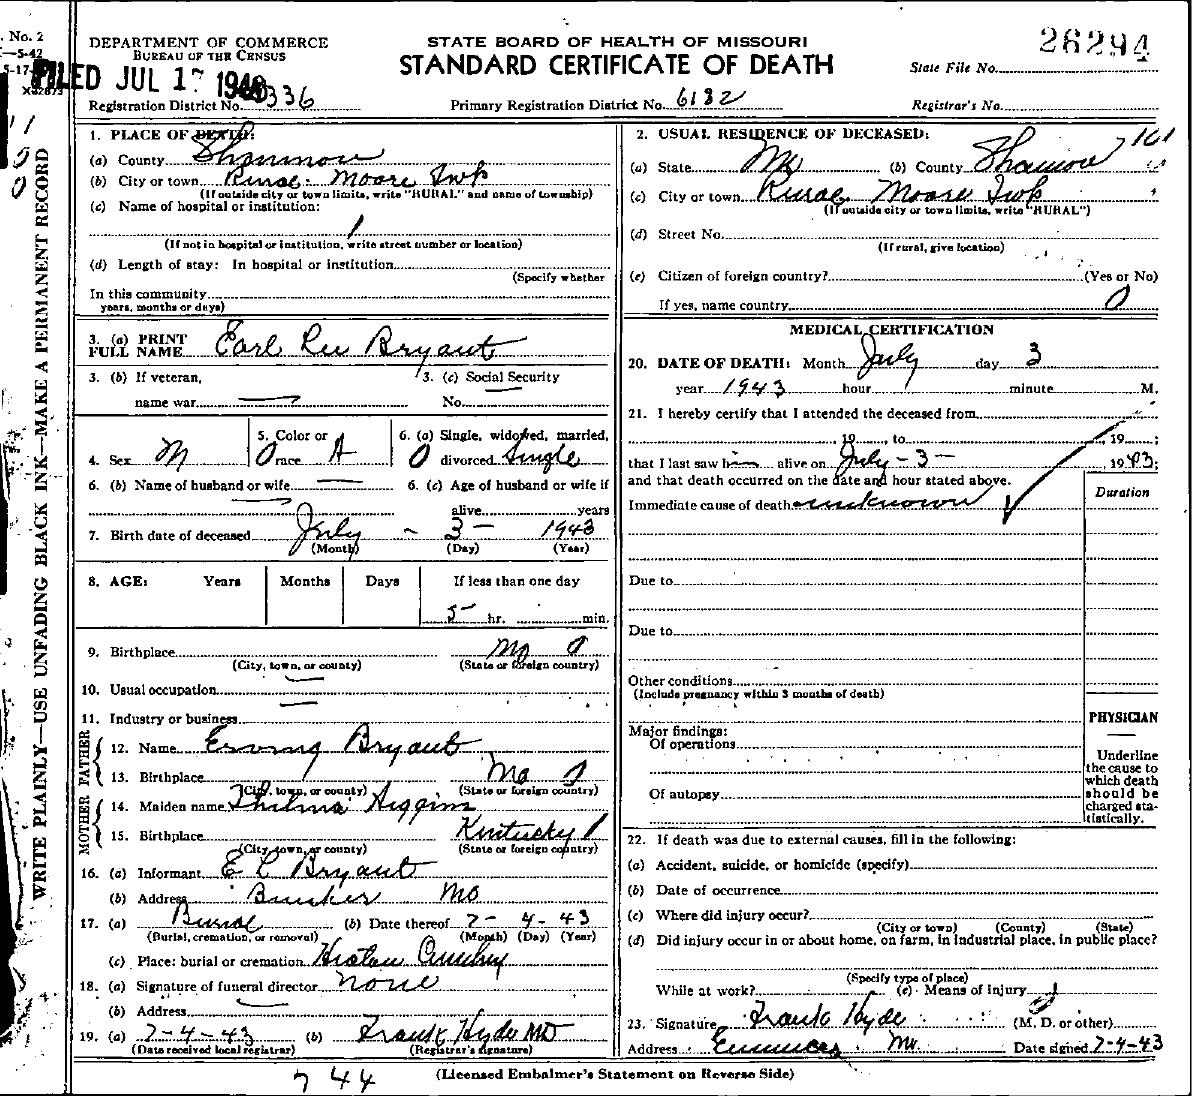 . No. 2
—5-42
5-17-
X32873
DEPARTMENT OF COMMERCE
BUREAU OF THE CENSUS
FILED JUL 17
Registration District No. 336
STATE BOARD OF HEALTH OF MISSOURI
STANDARD CERTIFICATE OF DEATH
Primary Registration District No. 6182
26294
State File No.
Registrar's No.
WRITE PLAINLY—USE UNFADING BLACK INK—MAKE A PERMANENT RECORD
1. PLACE OF DEATH:
(a) County Shannon
(b) City or town Rural. Moore Twp
(If outside city or town limits, write "RURAL" and name of township)
(c) Name of hospital or institution:
(If not in hospital or institution, write street number or location)
(d) Length of stay: In hospital or institution
(Specify whether
In this community
years, months or days)
3. (a) PRINT FULL NAME Earl Lee Bryant
3. (b) If veteran,
name war
3. (c) Social Security
No.
4. Sex M
5. Color or
race
6. (a) Single, widowed, married,
divorced Single
6. (b) Name of husband or wife
6. (c) Age of husband or wife if
alive years
7. Birth date of deceased July - 3 - 1943
(Month) (Day) (Year)
8. AGE: Years Months Days If less than one day
5 hr. min.
9. Birthplace Mo
(City, town, or county) (State or foreign country)
10. Usual occupation
11. Industry or business
FATHER
12. Name Erving Bryant
13. Birthplace Mo
(City, town, or county) (State or foreign country)
MOTHER
14. Maiden name Thelma Higgins
15. Birthplace Kentucky
(City, town, or county) (State or foreign country)
16. (a) Informant E L Bryant
(b) Address Bunker Mo
17. (a) Burial (b) Date thereof 7-4-43
(Burial, cremation, or removal) (Month) (Day) (Year)
(c) Place: burial or cremation
18. (a) Signature of funeral director none
(b) Address
19. (a) 7-4-43 (b) Frank Hyde MD
(Date received local registrar) (Registrar's signature)
2. USUAL RESIDENCE OF DECEASED:
(a) State Mo (b) County Shannon
(c) City or town Rural Moore Twp
(If outside city or town limits, write "RURAL")
(d) Street No.
(If rural, give location)
(e) Citizen of foreign country? (Yes or No)
If yes, name country
MEDICAL CERTIFICATION
20. DATE OF DEATH: Month July day 3
year 1943 hour minute M.
21. I hereby certify that I attended the deceased from
, 19 , to , 19 ;
that I last saw him alive on July - 3 - 1943;
and that death occurred on the date and hour stated above.
Immediate cause of death unknown
Duration
Due to
Due to
Other conditions
(Include pregnancy within 3 months of death)
Major findings:
Of operations
Of autopsy
PHYSICIAN
Underline
the cause to
which death
should be
charged sta-
tistically.
22. If death was due to external causes, fill in the following:
(a) Accident, suicide, or homicide (specify)
(b) Date of occurrence
(c) Where did injury occur?
(City or town) (County) (State)
(d) Did injury occur in or about home, on farm, in industrial place, in public place?
(Specify type of place)
While at work? (e) Means of injury
23. Signature Frank Hyde (M. D. or other)
Address Eminence Mo. Date signed 7-4-43
(Licensed Embalmer's Statement on Reverse Side)
744